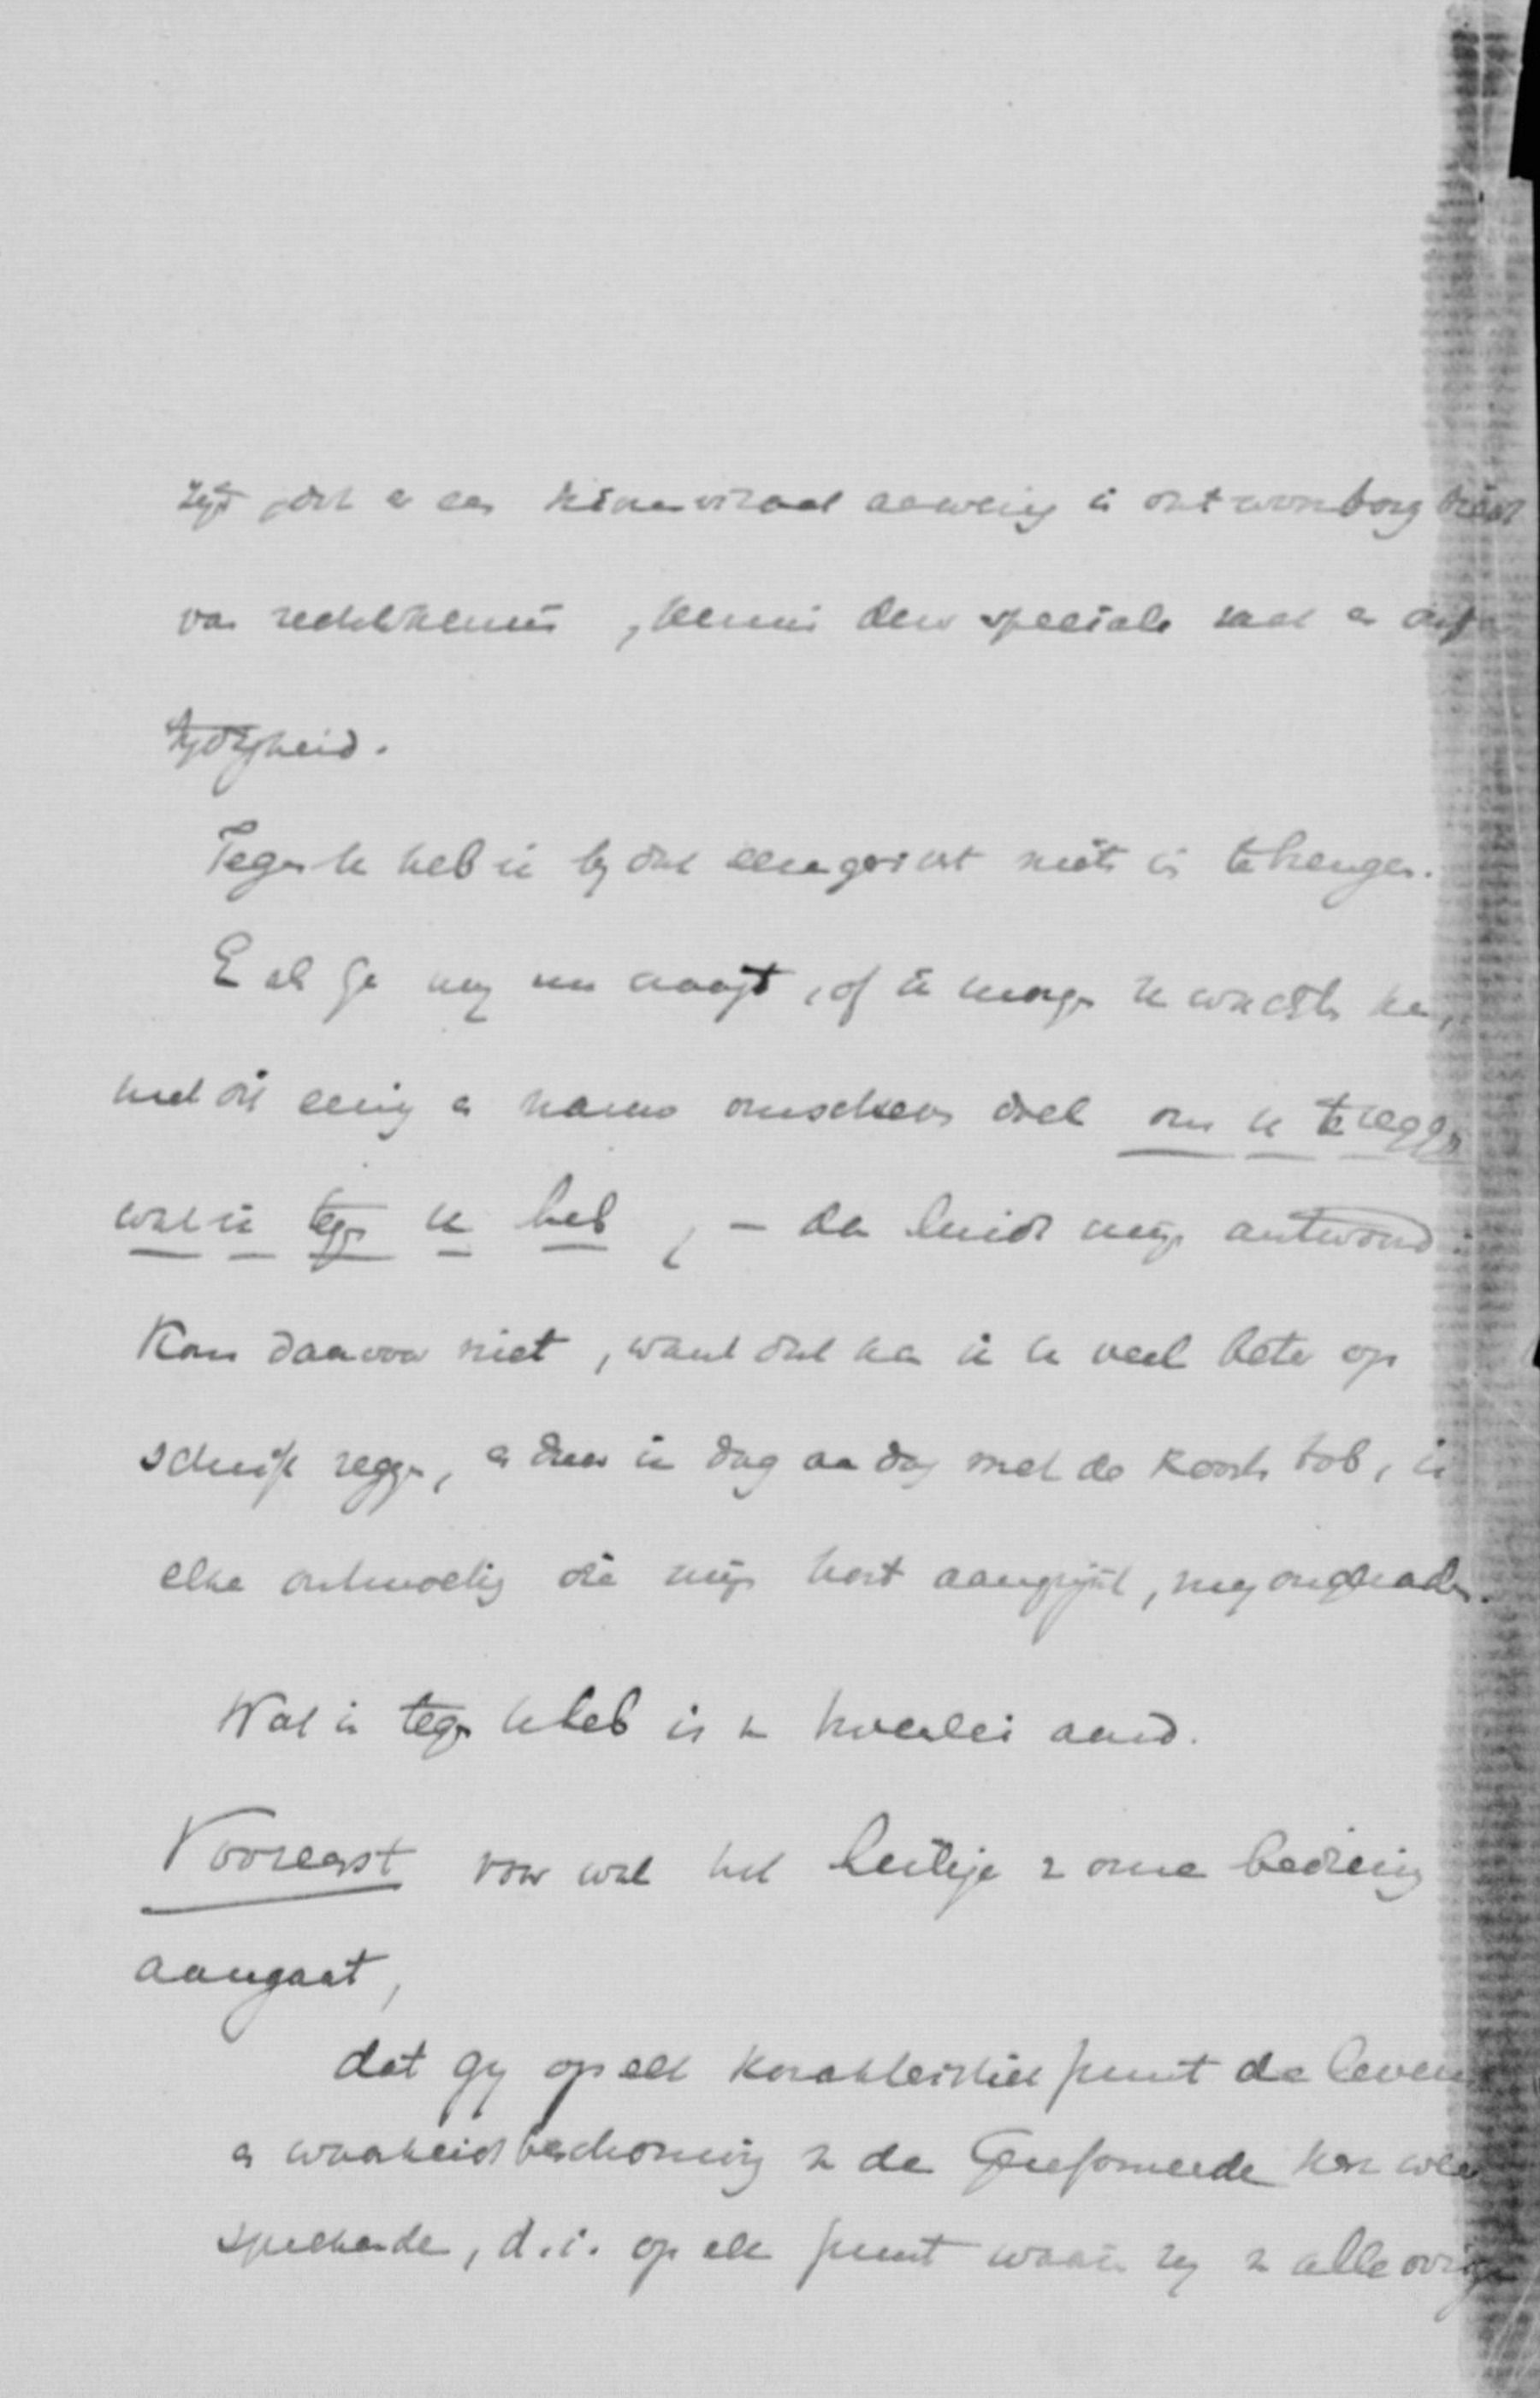 zijt, dat er een aanwezig is dat waarborg biedt
van rechtskennis, kennis der speciale zaak en
tijdigheid.
Tegen u heb ik bij dat niets in te brengen.
En als ge mij nu vraagt, of ik morgen u wachten kan,
met dit eenig en nauw omschreven doel om u te zeggen
wat ik tegen u heb, – dan luidt mijn antwoord:
Kom daarvoor niet, want dat kan ik u veel beter op
schrift zeggen, en daar ik dag aan dag met de koorts tob, is
elke ontmoeting die mijn hart aangrijpt, mij ongeraden.
Wat ik tegen u heb is van tweeerlei aard.
Vooreerst voor wat het heilige van onze bediening
aangaat,
dat gij op elk karakteristiek punt de levens
en waarheidsbeschouwing van de Gereformeerde kerk weer
sprekende, d.i. op elk punt waarin zij van alle overige